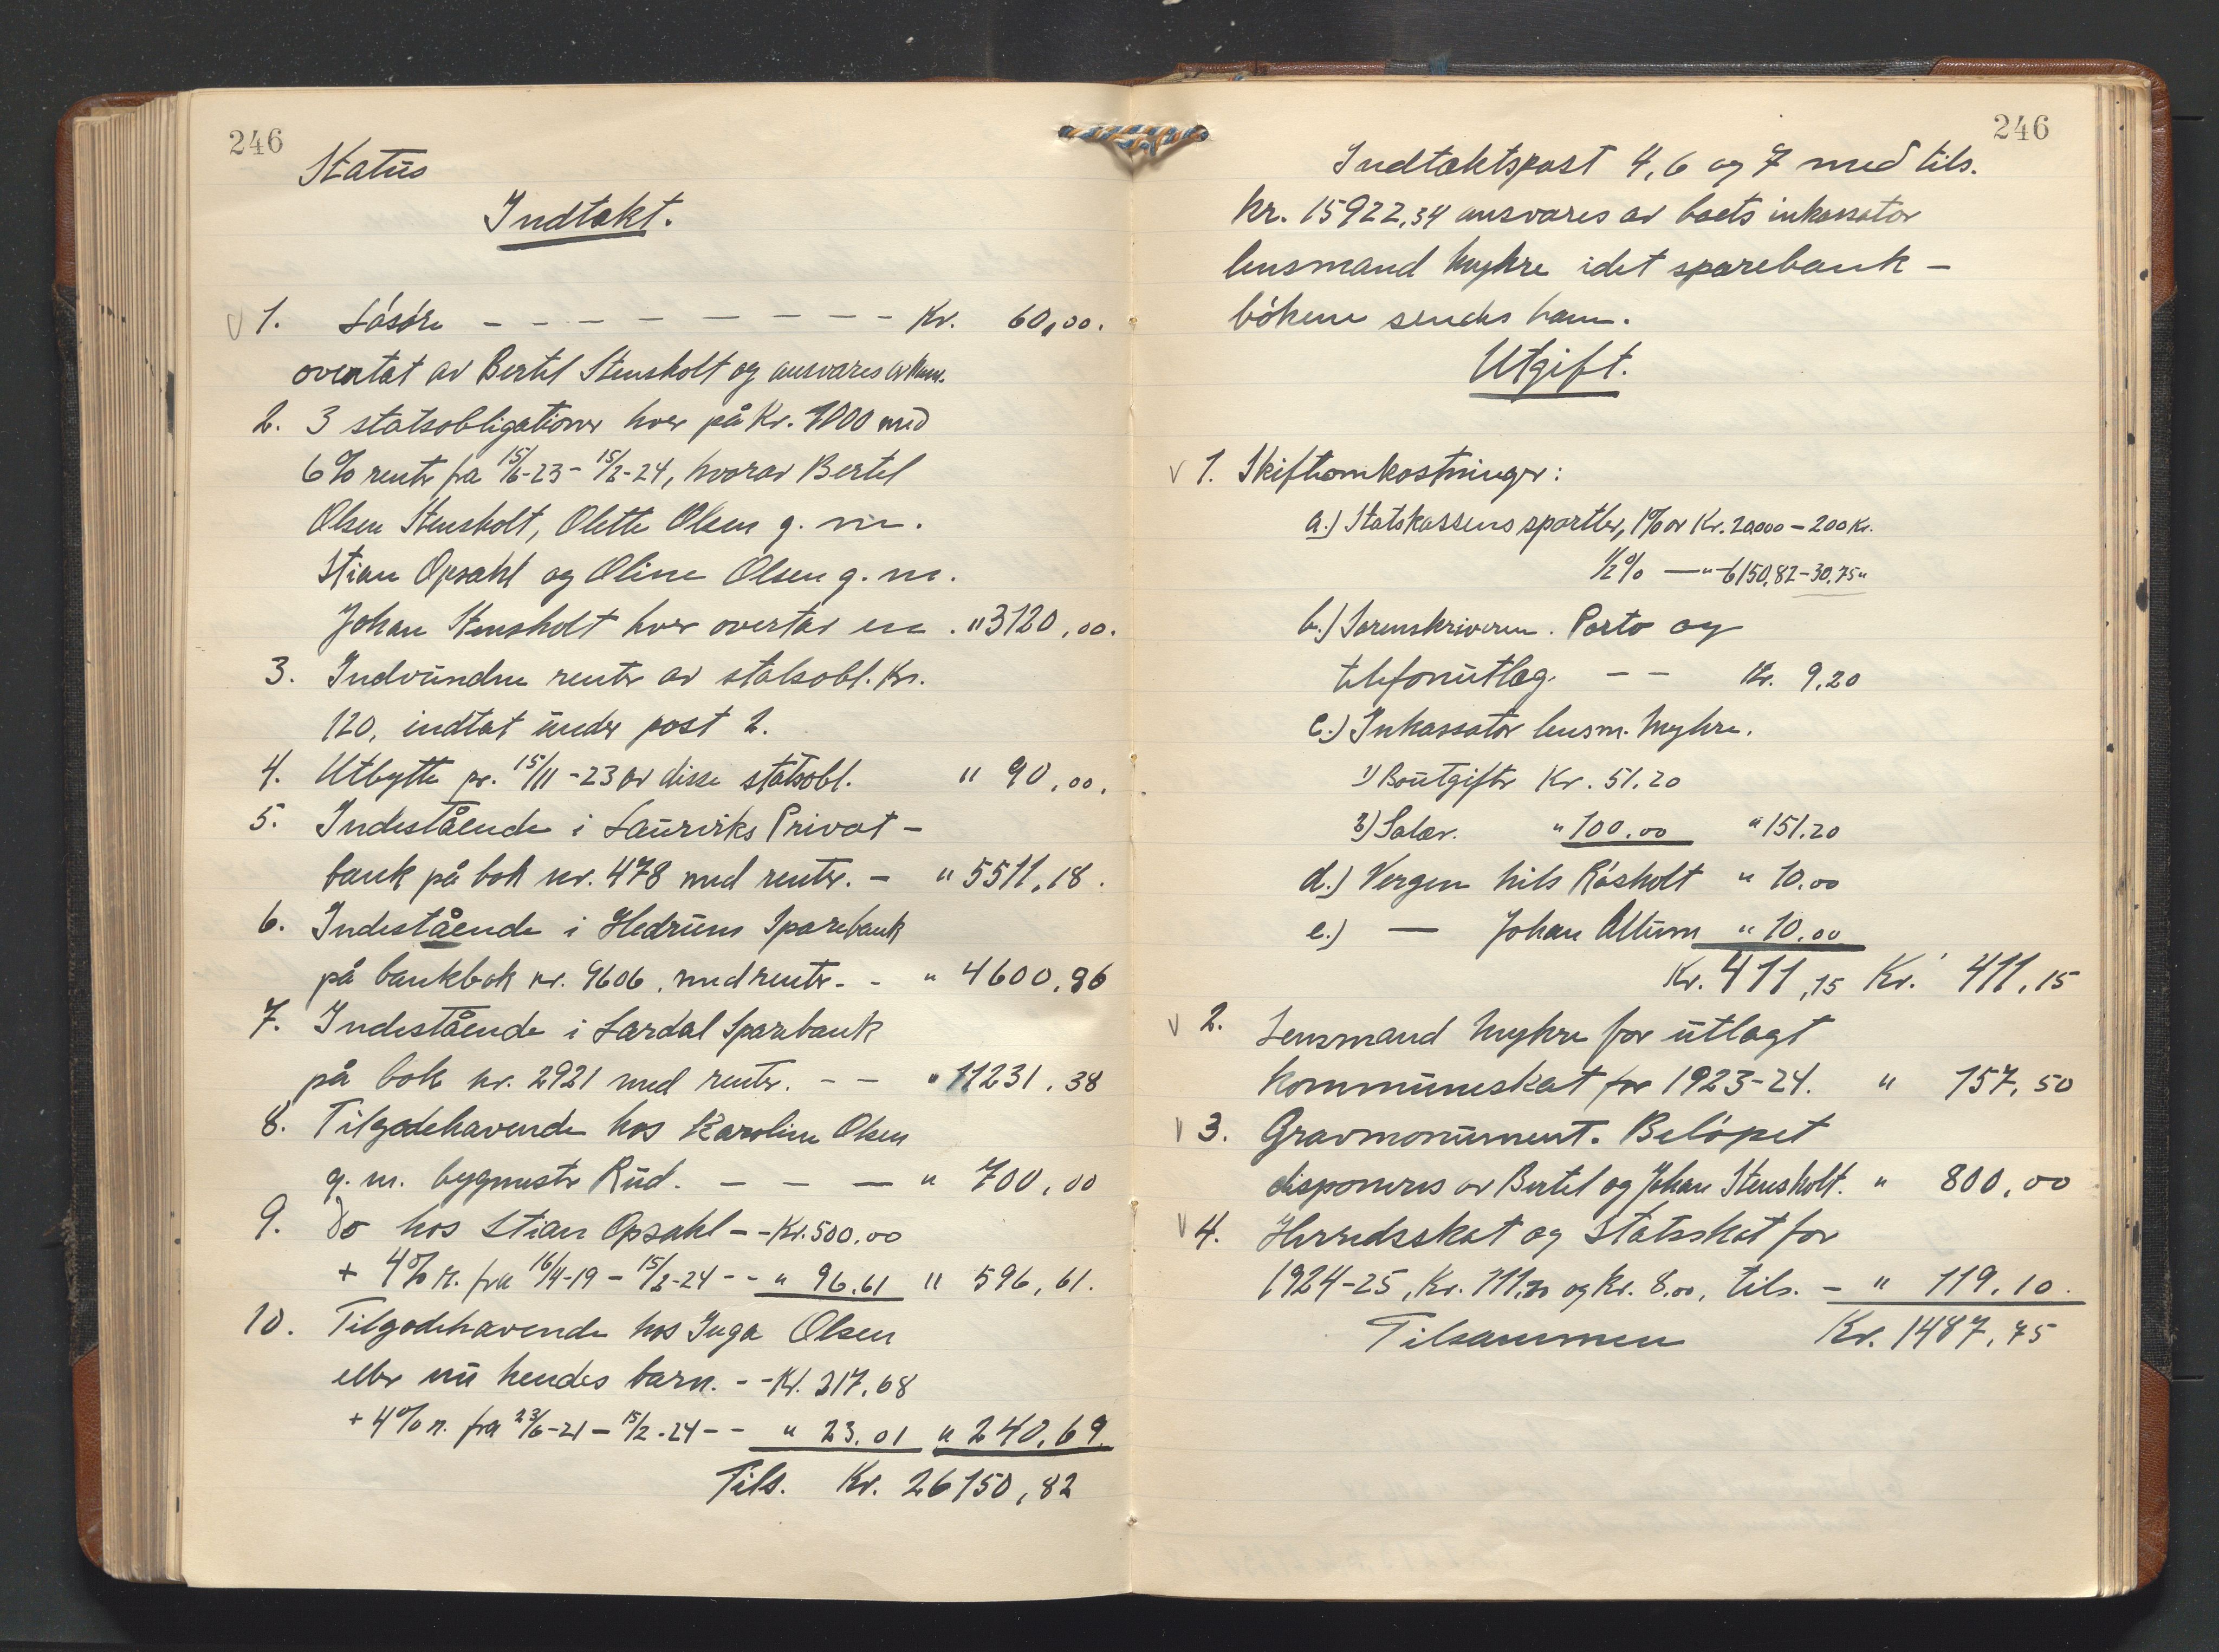 246
Status
Indtækt.
1. Løsøre - - - - - - - - Kr. 60,00.
overtat av Bertel Stensholt og ansvares av ham.
2. 3 statsobligationer hver på Kr. 1000 med
6% renter fra 15/6-23 - 15/2-24, hvorav Bertel
Olsen Stensholt, Olette Olsen g. m.
Stian Opsahl og Oline Olsen g. m.
Johan Stensholt hver overtar en. " 3120,00.
3. Indvundne renter av statsobl. Kr.
120, indtat under post 2.
4. Utbytte pr. 15/11-23 av disse statsobl. " 90,00.
5. Indestående i Laurviks Privat-
bank på bok nr. 478 med renter. - " 5511,18.
6. Indestående i Hedrums Sparebank
på bankbok nr. 9606. med renter - - " 4600,96
7. Indestående i Lardal Sparebank
på bok nr. 2921 med renter. - - " 11231,38
8. Tilgodehavende hos Karoline Olsen
g. m. bygmester Rud. - - - " 700,00
9. Do hos Stian Opsahl - - Kr. 500,00
+ 4% r. fra 16/4-19 - 15/2-24 - - " 96.61 " 596,61.
10. Tilgodehavende hos Inga Olsen
eller nu hendes barn. - - Kr. 217,68
+ 4% r. fra 23/6-21 - 15/2-24 - - " 23.01 " 240,69.
Tils. Kr. 26150,82
246
Indtæktspost 4, 6 og 7 med tils.
kr. 15922,34 ansvares av boets inkassator
lensmand Myhre idet sparebank-
bøkene sendes ham.
Utgift.
1. Skifteomkostninger:
a.) Statskassens sportler, 1% av Kr. 20000 - 200 Kr.
1/2% - " - 6150,82 - 30,75 "
b.) Sorenskriveren. Porto og
telefonutlæg. - - Kr. 9,20
c.) Inkassator lensm. Myhre.
1) Boutgifter Kr. 51.20
2) Salær. " 100.00 " 151.20
d.) Vergen Nils Røsholt " 10.00
e.) — Johan Allum " 10.00
Kr. 411,15 Kr. 411,15
2. Lensmand Myhre for utlagt
kommuneskat for 1923-24. " 157,50
3. Gravmonument. Beløpet
disponeres av Bertel og Johan Stensholt. " 800,00
4. Herredsskat og Statsskat for
1924-25, Kr. 111.10 og kr. 8.00, tils. - " 119.10.
Tilsammen Kr. 1487,75